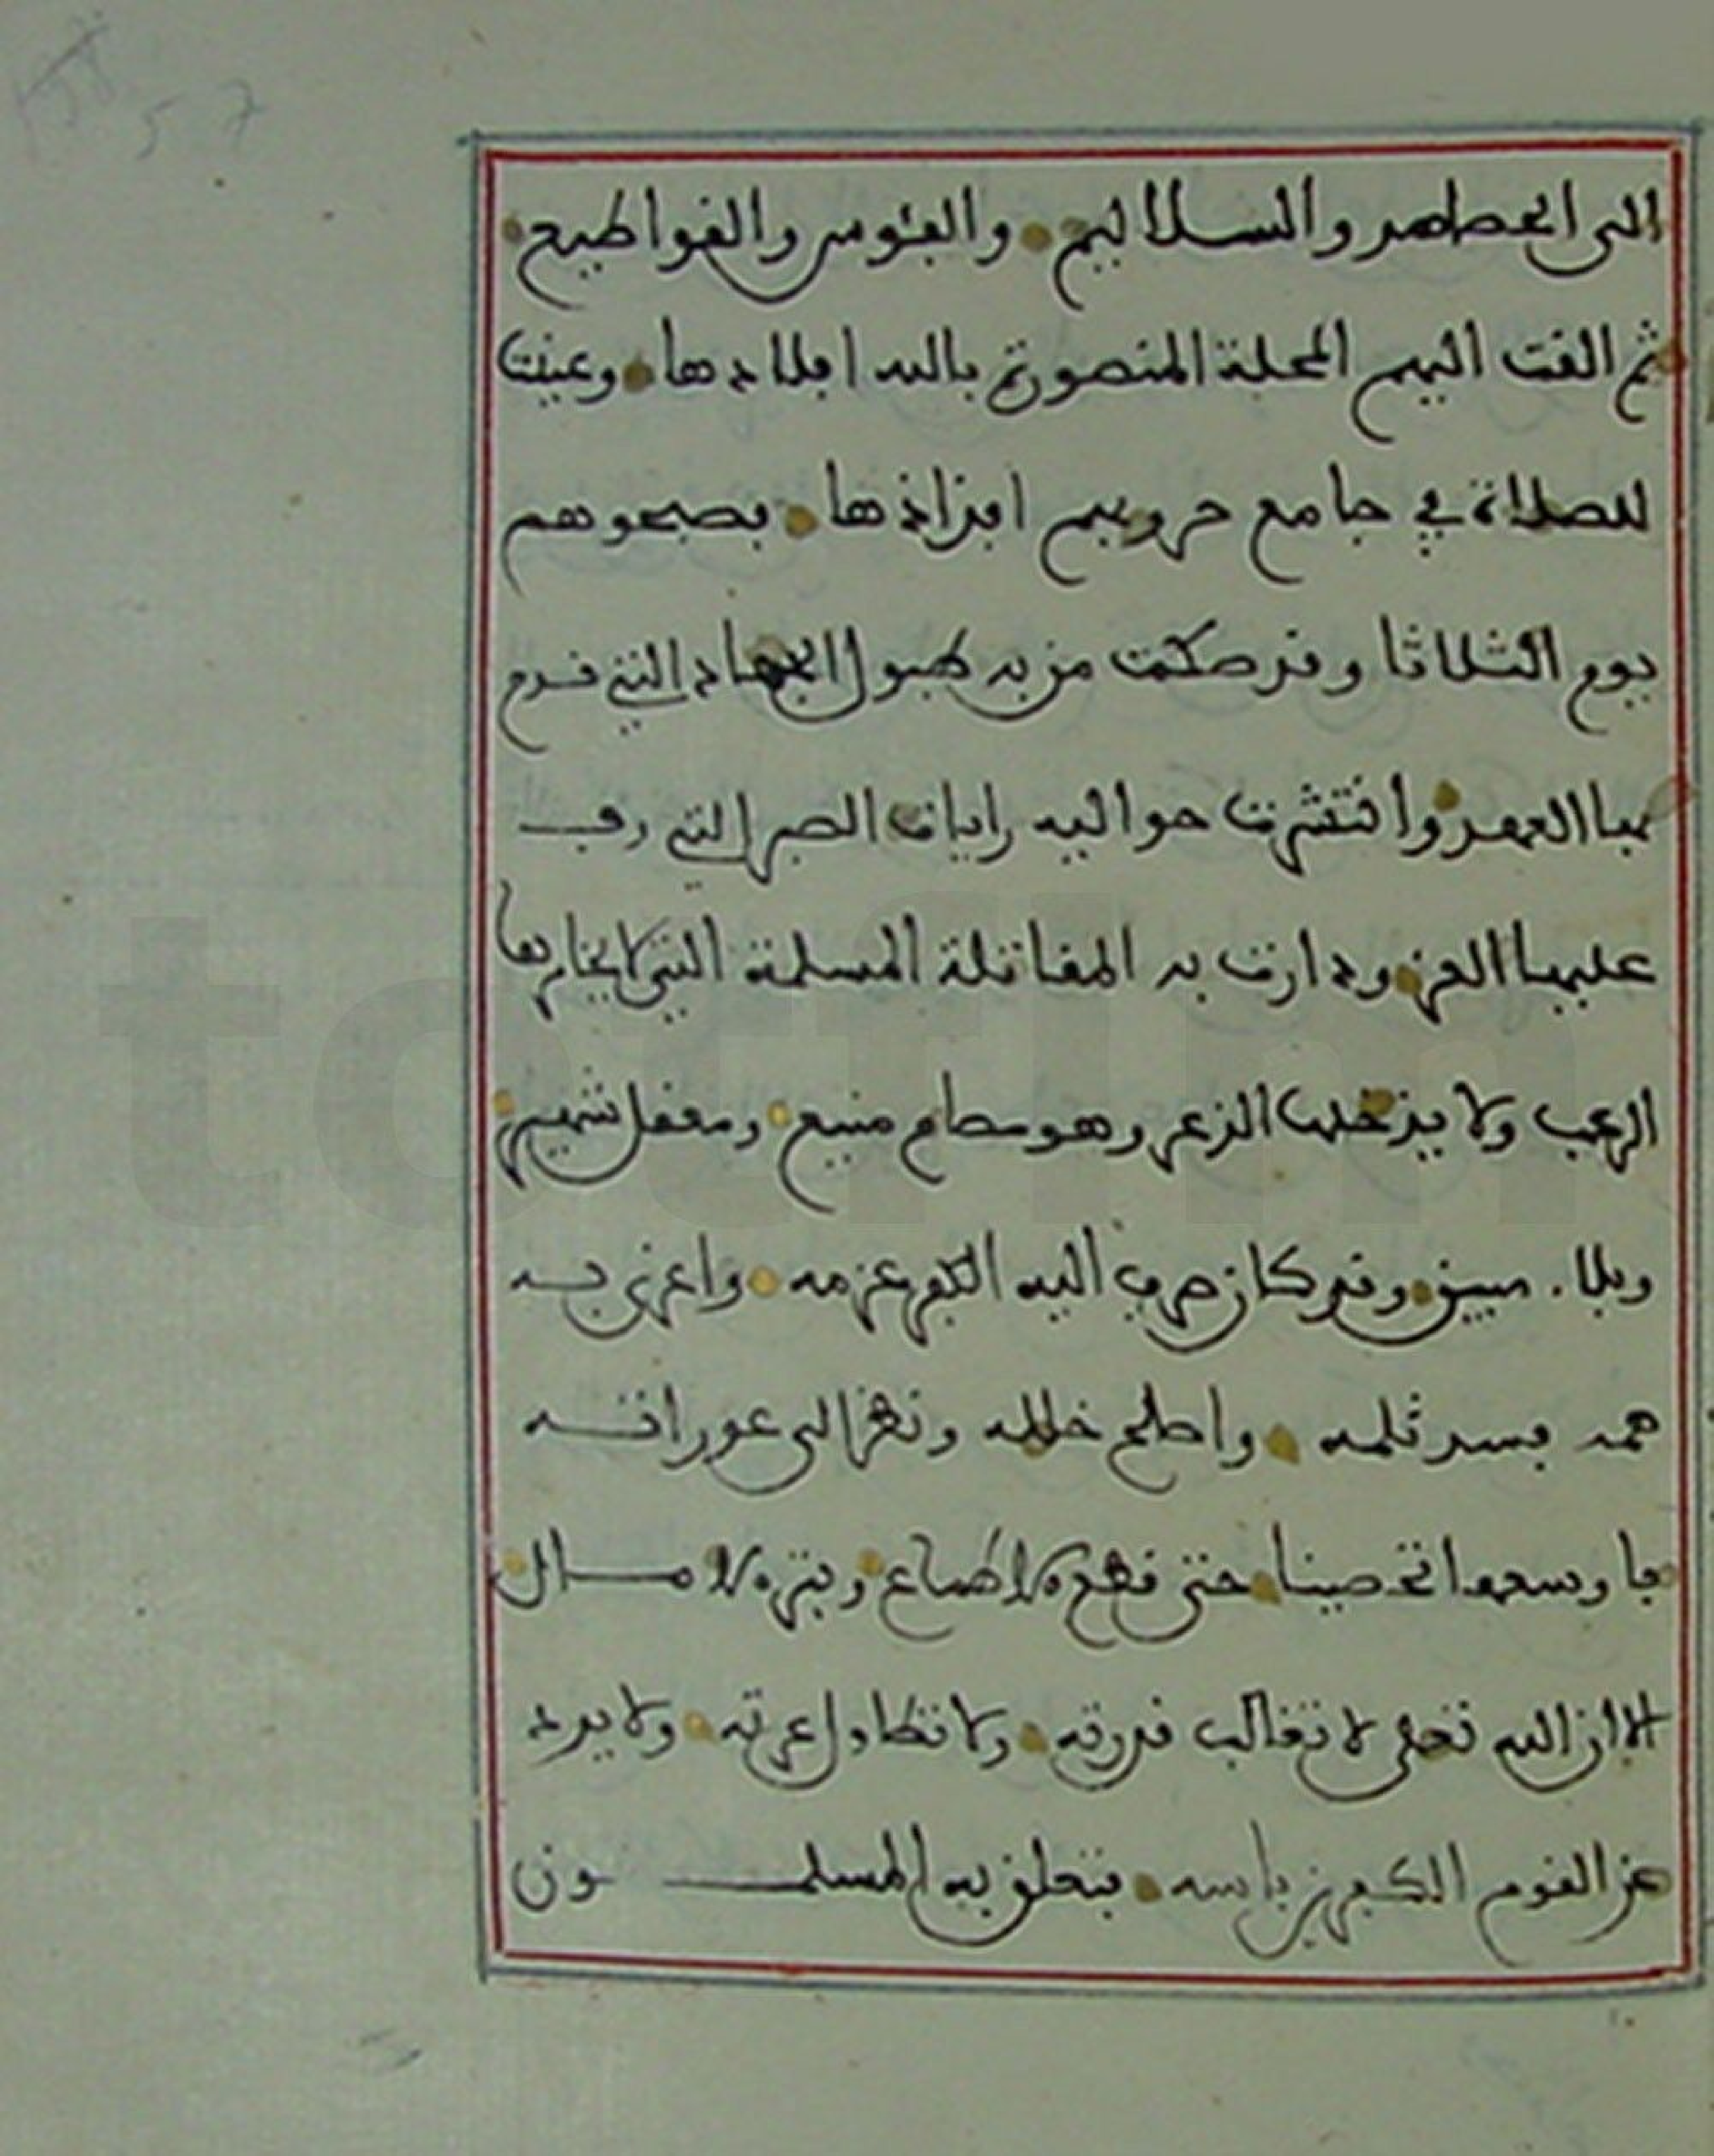 57
الى الحصر والسلاليم والفؤوس والقواطيع
ثم القت اليهم المحلة المنصورة بالله افلاذها وعينت
للصلاة في جامع حروبهم افذاذها فصبحوهم
يوم الثلاثا وقد صكت من به طبول الجهاد التي قدم
بها العهد وانتشرت حواليه رايات الصبر التي رف
عليها العز ودارت به المقاتلة المسلمة التي لا يخامرها
الرعب ولا يدخلها الذعر وهو سطام منيع ومعقل شهير
وبلاء مبين وقد كان صرف اليه الكفر عزمه واغرى به
همه بسد ثلمه واصلح خلله ونظر الى عوراته
فاوسعها تحصينا حتى تقع الاطماع وبتر الامال
الا ان الله تعلى لا تغالب قدرته ولا تطاول عزته ولا يرد
عن القوم الكفرين باسه فتعلق به المسلمون